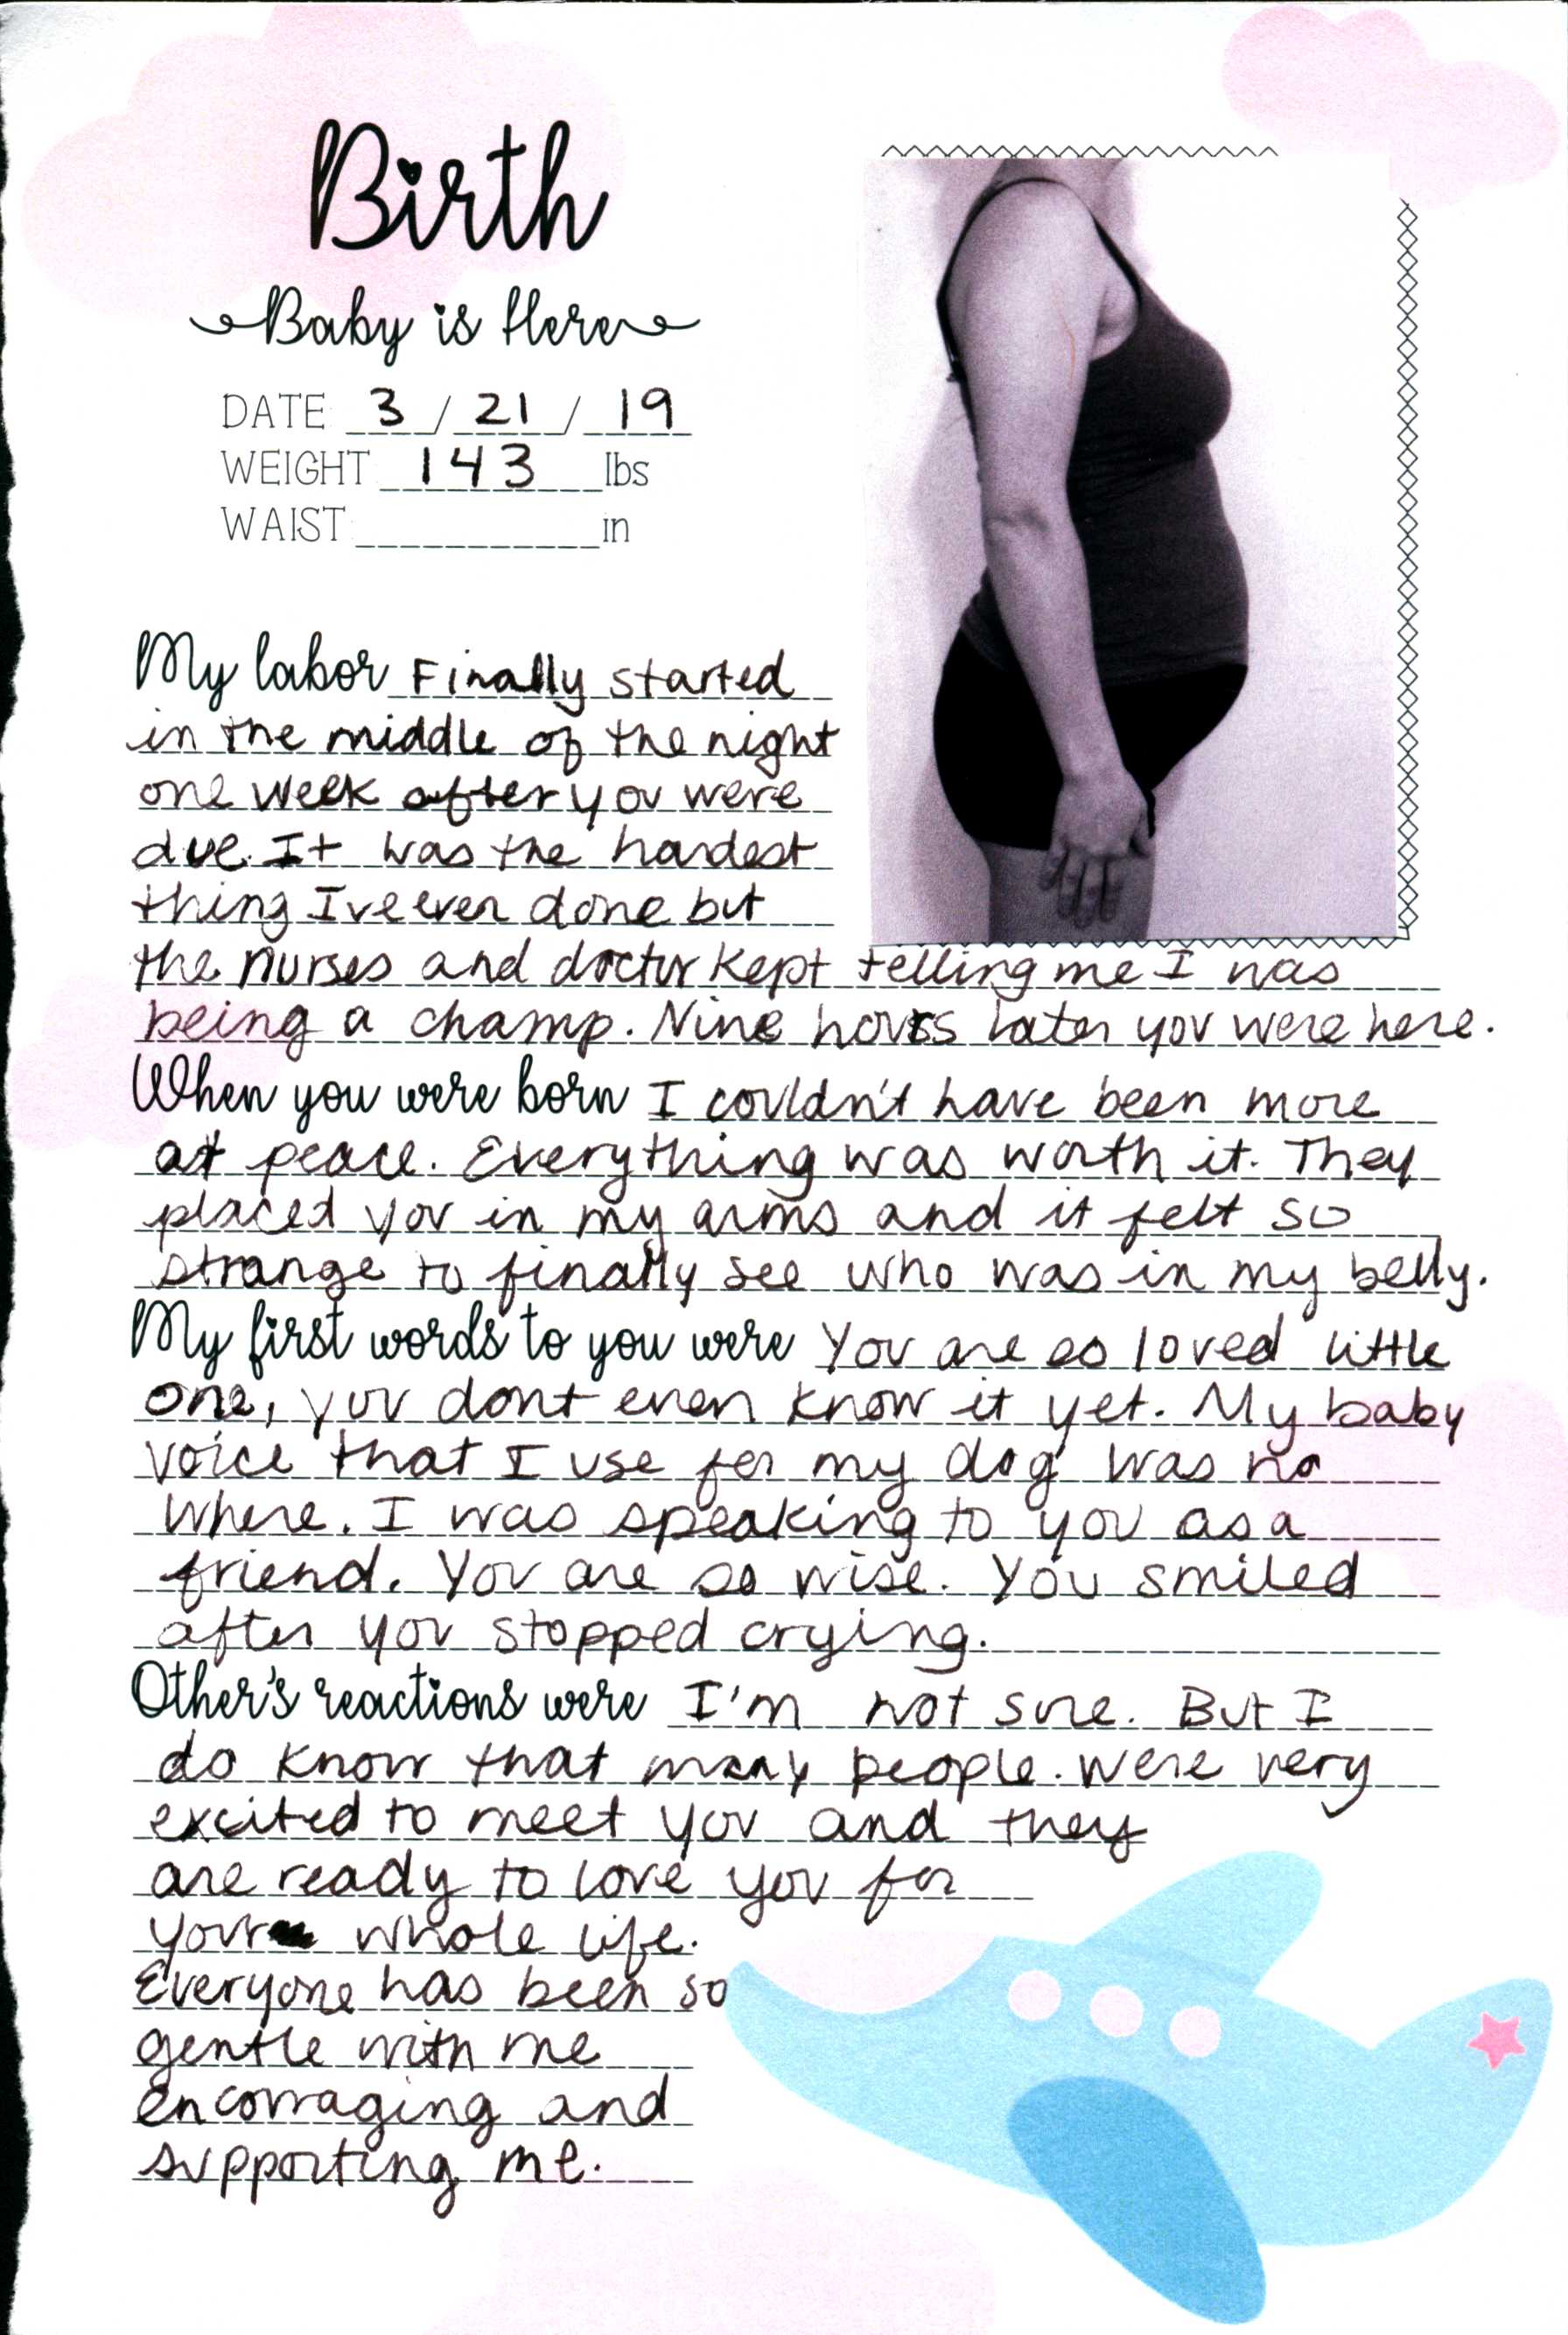 Birth
Baby is Here
DATE 3 / 21 / 19
WEIGHT 143 lbs
WAIST in
My labor Finally started
in the middle of the night
one week after you were
due. It was the hardest
thing Ive ever done but
the nurses and doctor kept telling me I was
being a champ. Nine hours later you were here.
When you were born I couldn't have been more
at peace. Everything was worth it. They
placed you in my arms and it felt so
strange to finally see who was in my belly.
My first words to you were You are so loved little
one, you dont even know it yet. My baby
voice that I use for my dog was no
where. I was speaking to you as a
friend. You are so wise. You smiled
after you stopped crying.
Other's reactions were I'm not sure. But I
do know that many people were very
excited to meet you and they
are ready to love you for
your whole life.
Everyone has been so
gentle with me
encouraging and
supporting me.